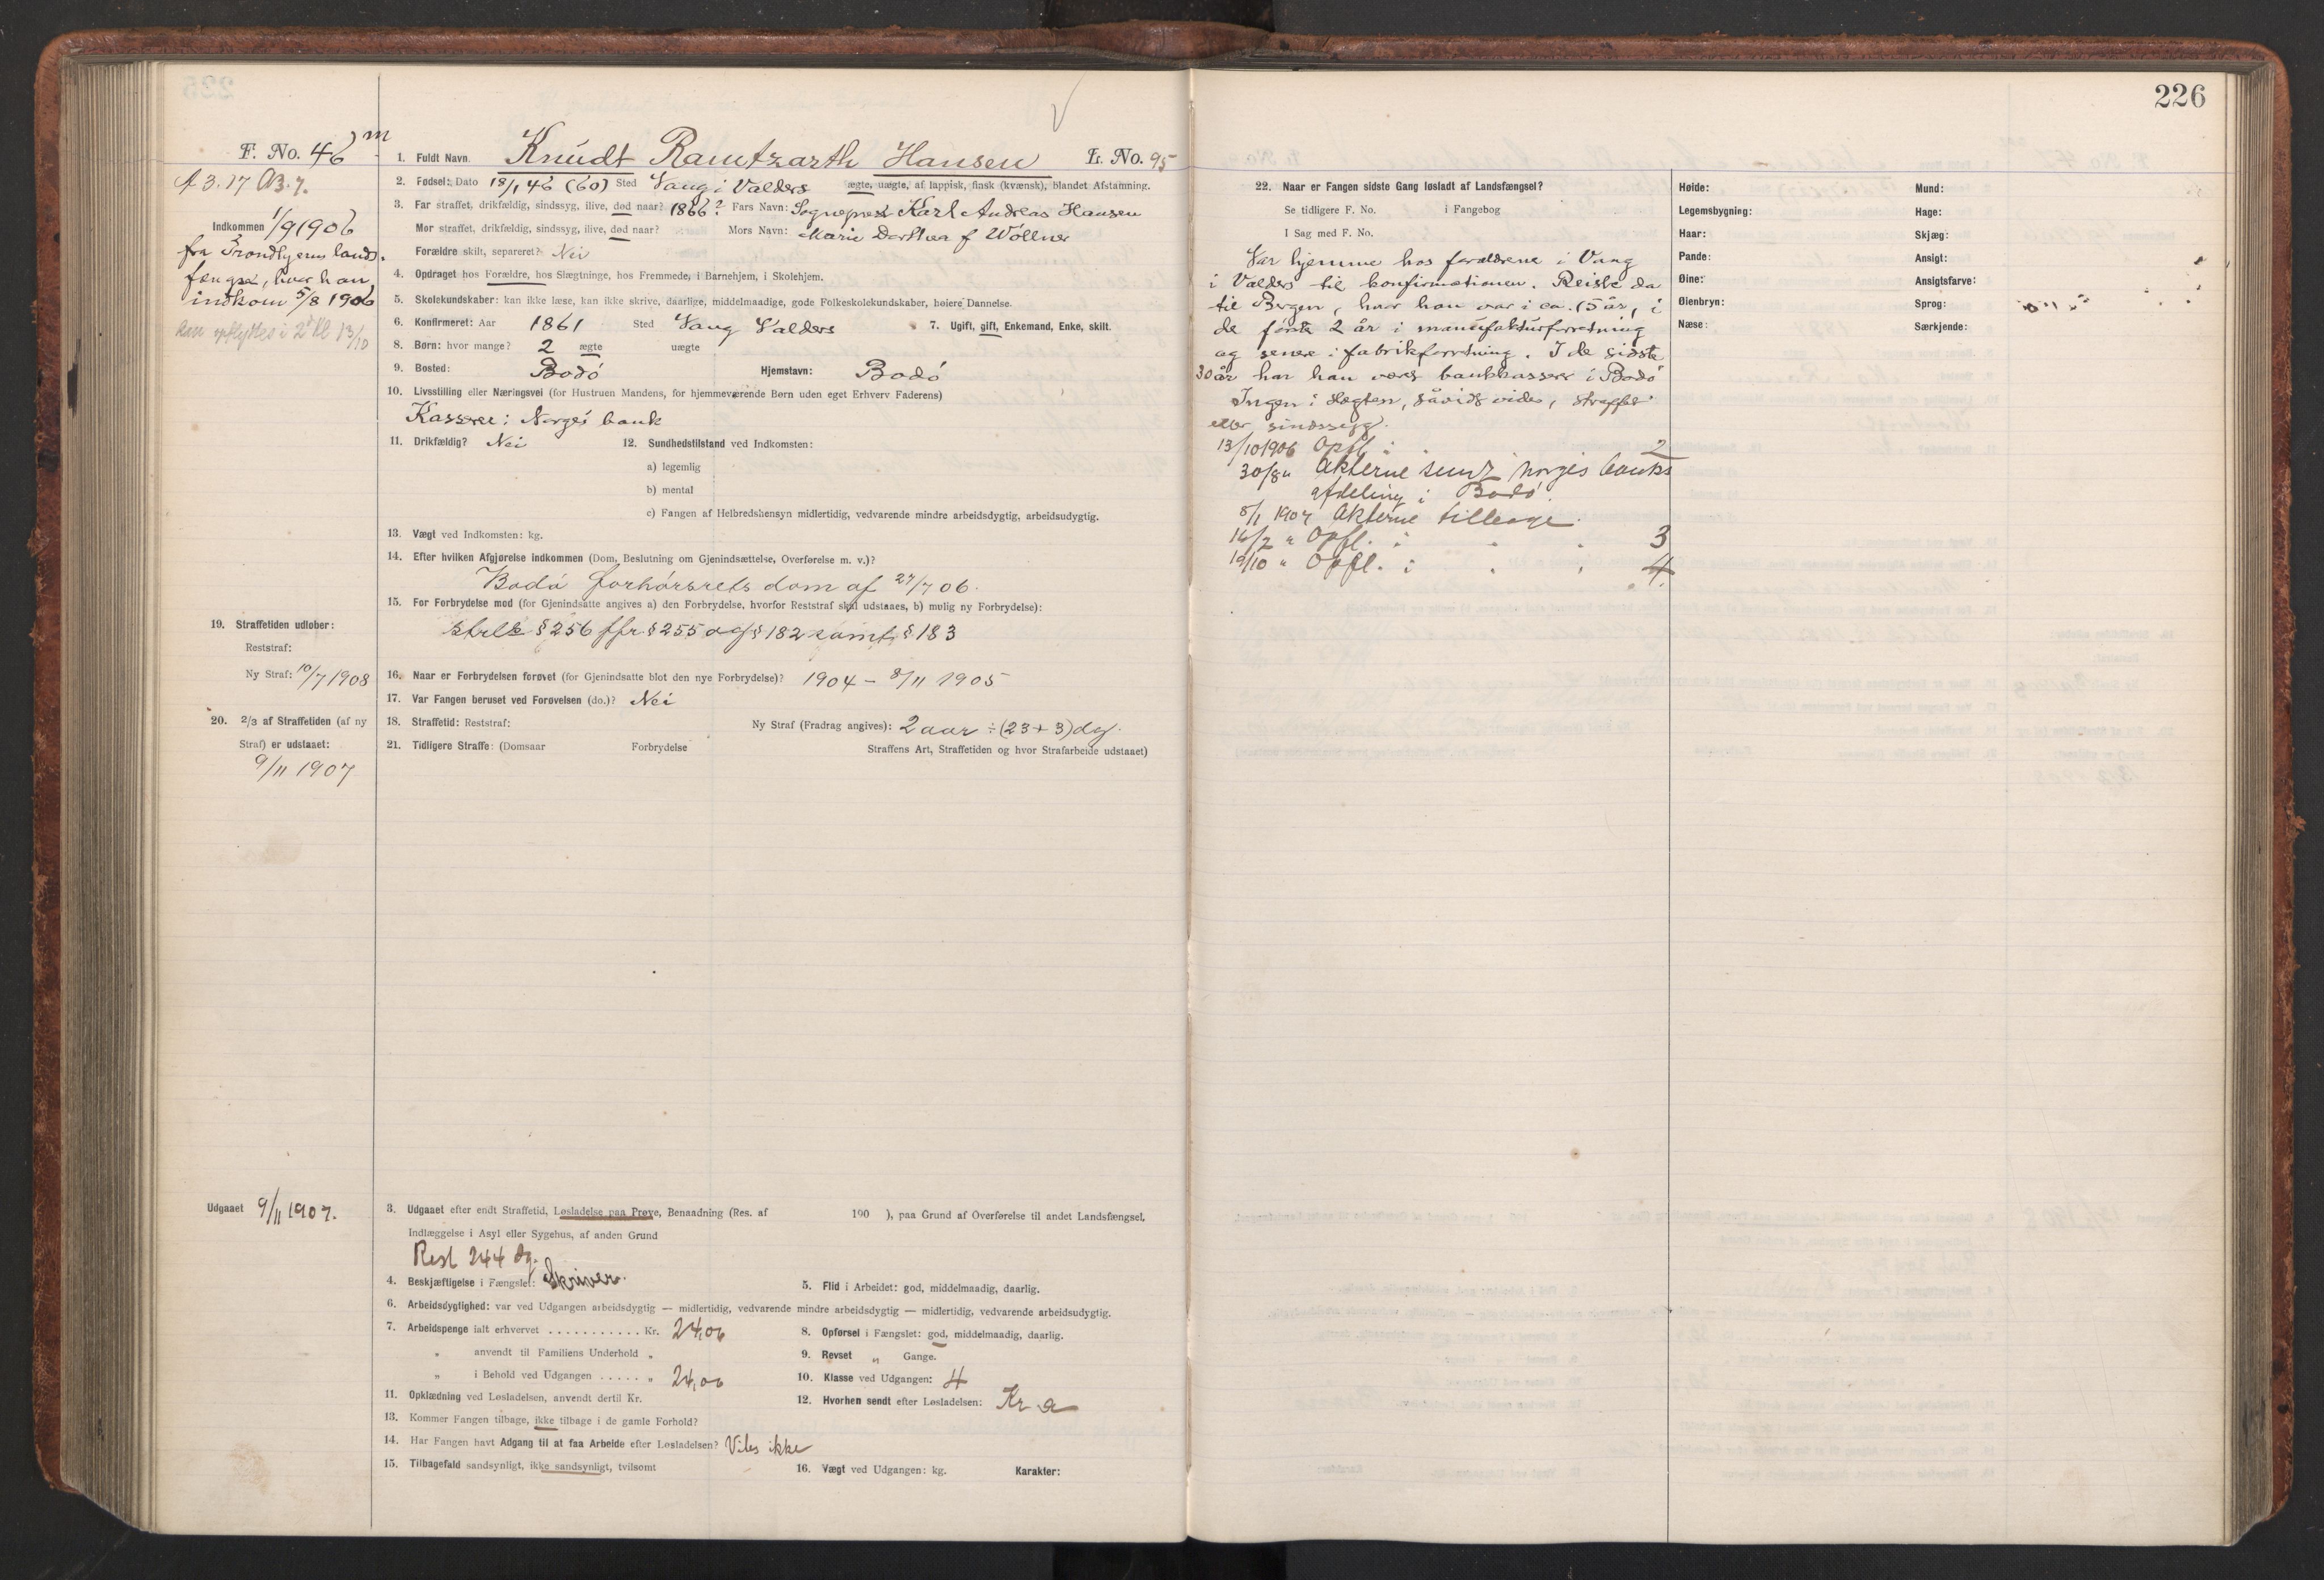 226
F. No. 46 m
A 3. 17 B3. 7.
Indkommen 1/9 1906
fra Trondhjems lands-
fængsel, hvor han
indkom 5/8 1906
kan opflyttes i 2' Kl 13/10
19. Straffetiden udløber:
Reststraf:
Ny Straf: 10/7 1908
20. 2/3 af Straffetiden (af ny
Straf) er udstaaet:
9/11 1907
Udgaaet 9/11 1907.
1. Fuldt Navn. Knudt Ramtzarth Hansen L. No. 95
2. Fødsel: Dato 18/1 46 (60) Sted Vang i Valders ægte, uægte, af lappisk, finsk (kvænsk), blandet Afstamning.
3. Far straffet, drikfældig, sindssyg, ilive, død naar? 1866? Fars Navn: Sogneprest Karl Andreas Hansen
Mor straffet, drikfældig, sindssyg, ilive, død naar? Mors Navn: Marie Dorthea f Wollner
Forældre skilt, separeret? Nei
4. Opdraget hos Forældre, hos Slægtninge, hos Fremmede, i Barnehjem, i Skolehjem.
5. Skolekundskaber: kan ikke læse, kan ikke skrive, daarlige, middelmaadige, gode Folkeskolekundskaber, høiere Dannelse.
6. Konfirmeret: Aar 1861 Sted Vang Valders 7. Ugift, gift, Enkemand, Enke, skilt.
8. Børn: hvor mange? 2 ægte uægte
9. Bosted: Bodó Hjemstavn: Bodó
10. Livsstilling eller Næringsvei (for Hustruen Mandens, for hjemmeværende Børn uden eget Erhverv Faderens)
Kasserer i Norges bank
11. Drikfældig? Nei 12. Sundhedstilstand ved Indkomsten:
a) legemlig
b) mental
c) Fangen af Helbredshensyn midlertidig, vedvarende mindre arbeidsdygtig, arbeidsudygtig.
13. Vægt ved Indkomsten: kg.
14. Efter hvilken Afgjørelse indkommen (Dom, Beslutning om Gjenindsættelse, Overførelse m. v.)?
Bodó forhórsrets dom af 27/7 06.
15. For Forbrydelse mod (for Gjenindsatte angives a) den Forbrydelse, hvorfor Reststraf skal udstaaes, b) mulig ny Forbrydelse):
strls § 256 jfr. § 255 og § 182 samt § 183
16. Naar er Forbrydelsen forøvet (for Gjenindsatte blot den nye Forbrydelse)? 1904 – 8/11 1905
17. Var Fangen beruset ved Forøvelsen (do.)? Nei
18. Straffetid: Reststraf: Ny Straf (Fradrag angives): 2 aar ÷ (23 + 3) dg.
21. Tidligere Straffe: (Domsaar Forbrydelse Straffens Art, Straffetiden og hvor Strafarbeide udstaaet)
3. Udgaaet efter endt Straffetid, Løsladelse paa Prøve, Benaadning (Res. af 190 ), paa Grund af Overførelse til andet Landsfængsel,
Indlæggelse i Asyl eller Sygehus, af anden Grund
Rest 244 dg.
4. Beskjæftigelse i Fængslet: Skriver. 5. Flid i Arbeidet: god, middelmaadig, daarlig.
6. Arbeidsdygtighed: var ved Udgangen arbeidsdygtig — midlertidig, vedvarende mindre arbeidsdygtig — midlertidig, vedvarende arbeidsudygtig.
7. Arbeidspenge ialt erhvervet . . . . . . . . . . . Kr. 24,06 8. Opførsel i Fængslet: god, middelmaadig, daarlig.
" anvendt til Familiens Underhold " 9. Revset " Gange.
" i Behold ved Udgangen . . . . . " 24,06 10. Klasse ved Udgangen: 4
11. Opklædning ved Løsladelsen, anvendt dertil Kr. 12. Hvorhen sendt efter Løsladelsen: Kr a
13. Kommer Fangen tilbage, ikke tilbage i de gamle Forhold?
14. Har Fangen havt Adgang til at faa Arbeide efter Løsladelsen? Vides ikke
15. Tilbagefald sandsynligt, ikke sandsynligt, tvilsomt 16. Vægt ved Udgangen: kg. Karakter:
22. Naar er Fangen sidste Gang løsladt af Landsfængsel?
Se tidligere F. No. i Fangebog
I Sag med F. No.
Var hjemme hos forældrene i Vang
i Valders til konfirmationen. Reiste da
til Bergen, hvor han var i ca. 15 år, i
de første 2 år i manufakturforretning
og senere i fabrikforretning. I de sidste
30 år har han været bankkasserer i Bodó
Ingen i slegten, såvidt vides, straffet
eller sindssyg.
13/10 1906 Opfl. i 2
30/8 " Akterne sendt Norges banks
afdeling i Bodó.
8/1 1907 Akterne tilbage.
16/2 " Opfl. i " " 3
19/10 " Opfl. i " " 4.
Høide:
Legemsbygning:
Haar:
Pande:
Øine:
Øienbryn:
Næse:
Mund:
Hage:
Skjæg:
Ansigt:
Ansigtsfarve:
Sprog:
Særkjende: